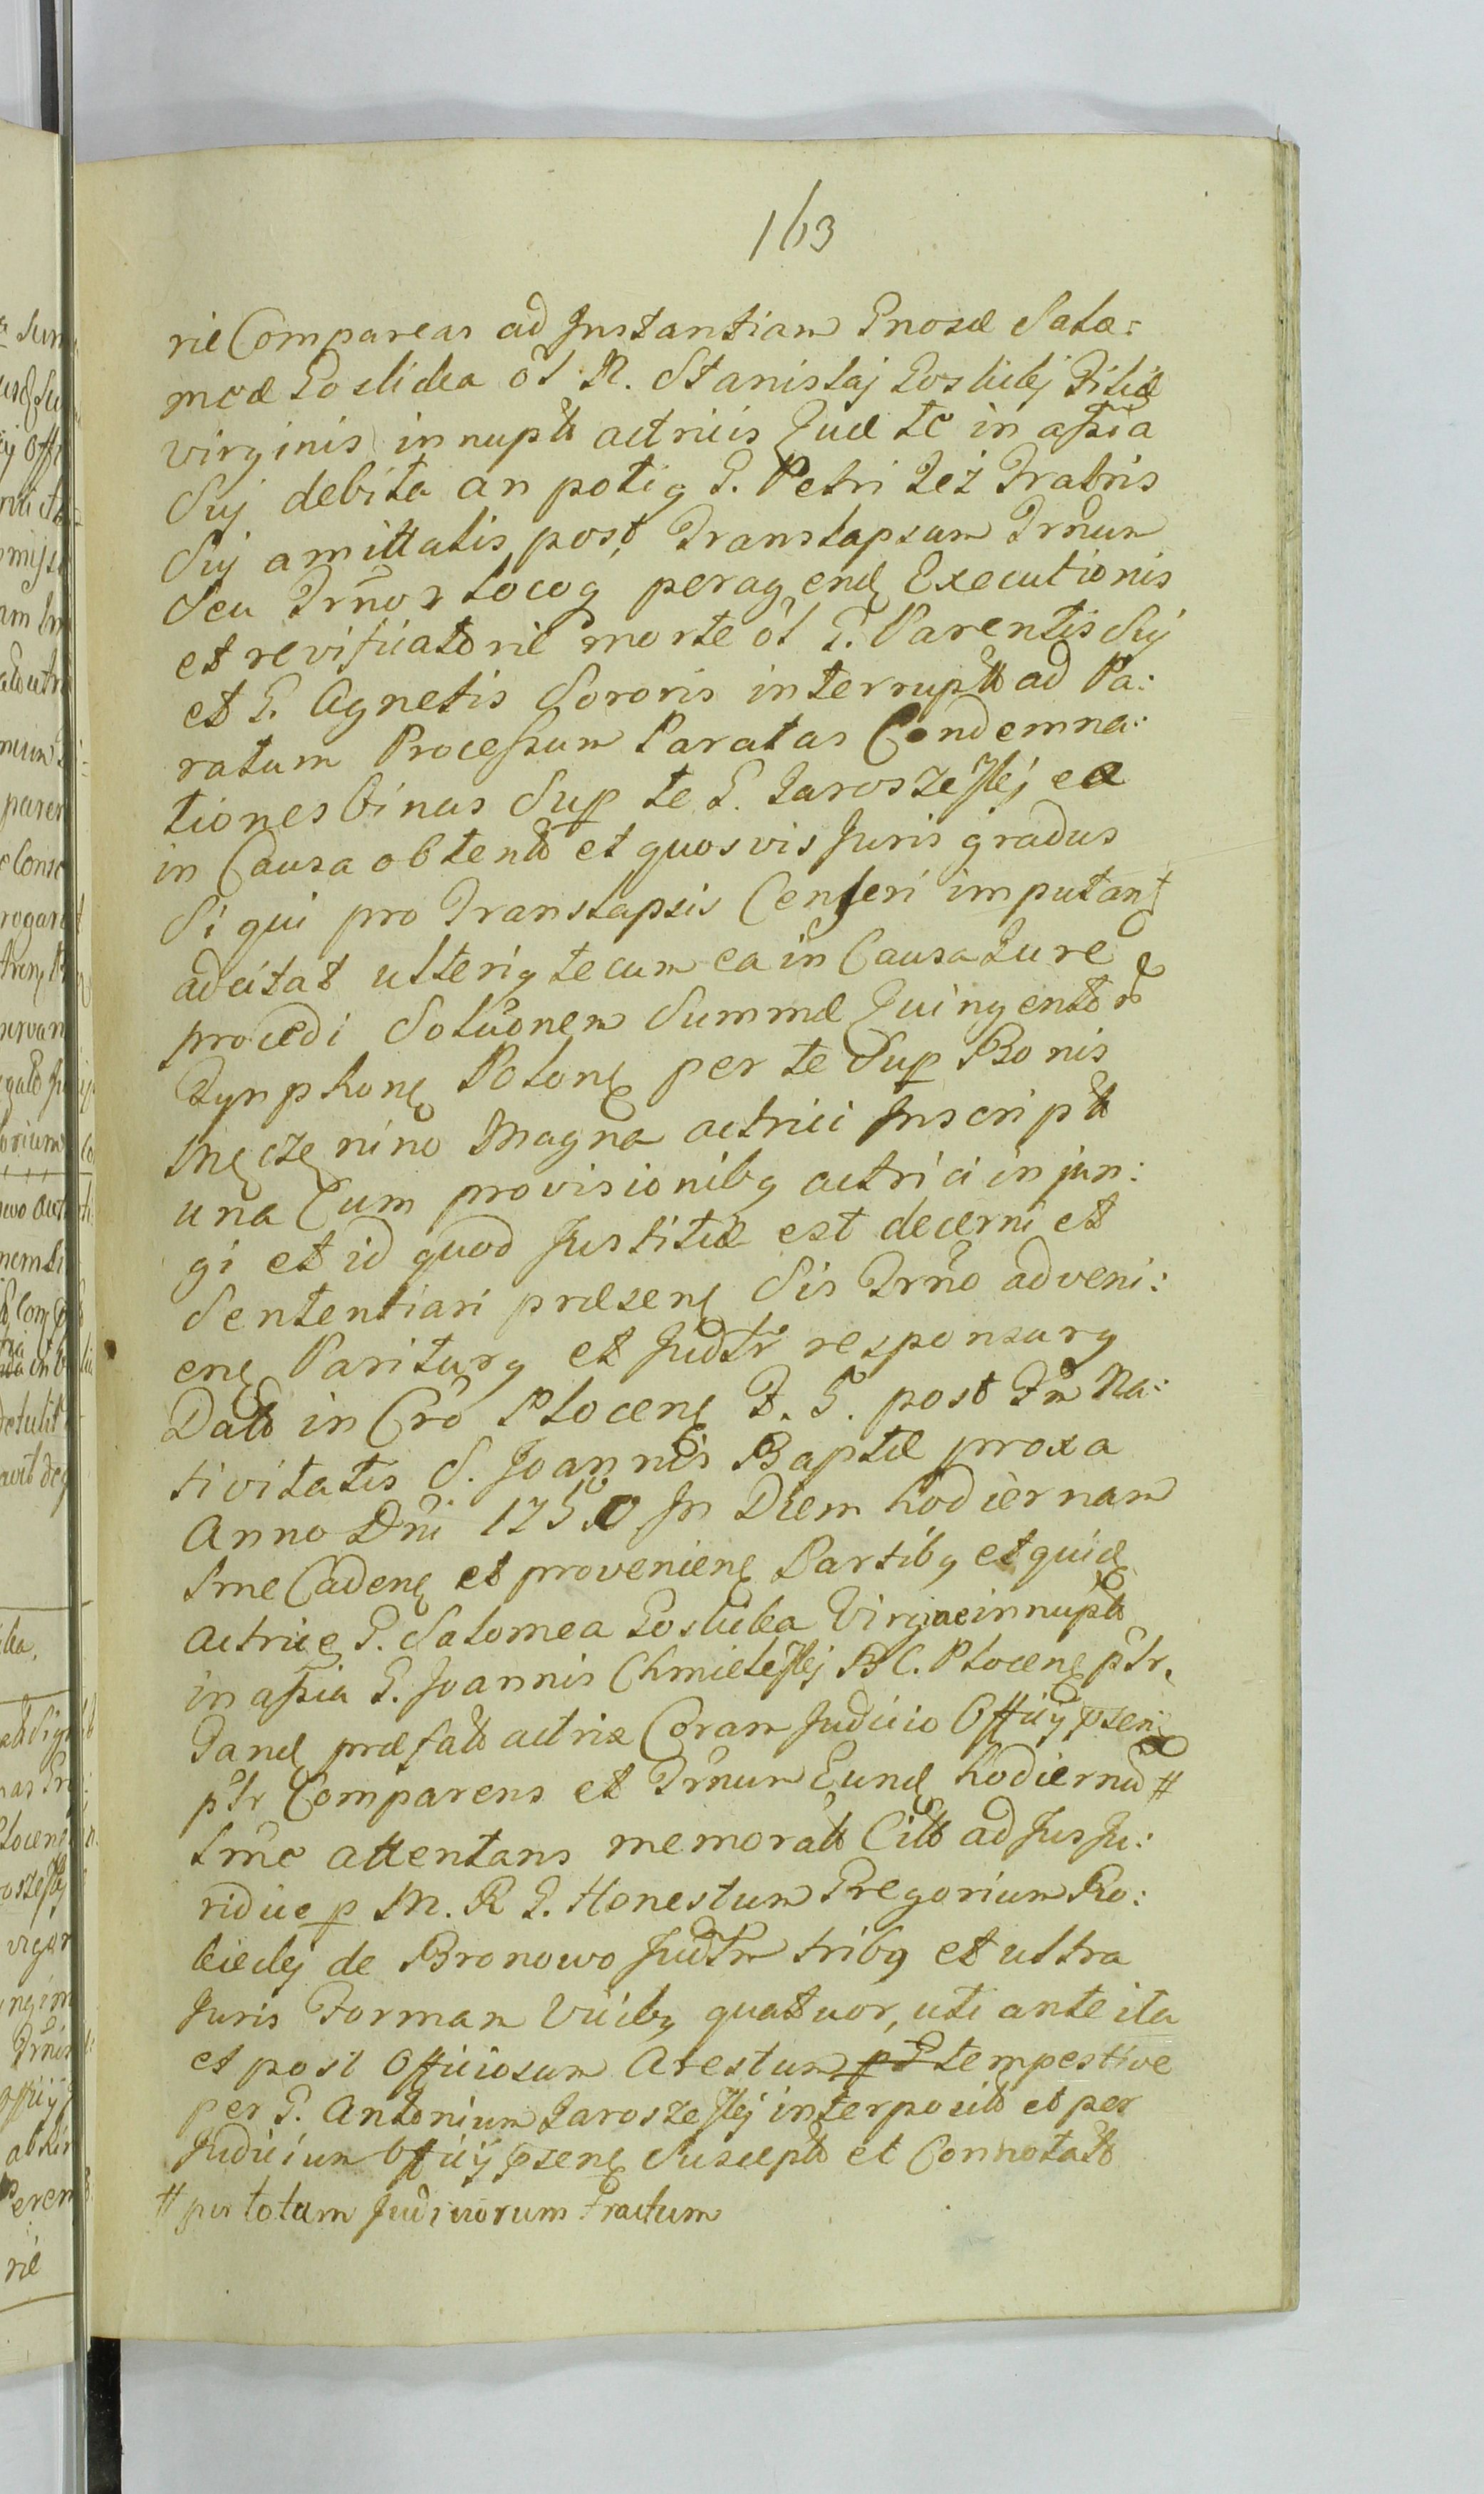 163
rie Compareas ad Instantiam Gnosæ Salo:
meæ Goslicka ol N. Stanislaj Goslickj Filiæ
virginis innuptæ actricis Quæ te in assia
Suj debita an potig G. Petri Jeż Fratris
Suj amittalis post Translapsam Trñum
Seu Trñor locoq peragend Executionis
et revisicatorie morte ol G. Parentis Suj
et G. Agnetis Sororis interrupta ad Pa:
ratum Processum Paratas Condemna:
tiones binas Sup te G. Jaroszeskj ea
in Causa obtentas et quosvis Juris gradus
Si qui pro Translapsis Censeri imputant
adcitat ulterig tecum ea in Causa Jure
procedi Soluõnem Summæ Quingentor
Tynphon Polon per te Sup Bonis
Męczenino Magna actrici Inscripta
una Cum provisionibq actrici injun:
gi et id quod Justitiæ est decerni et
Sententiari præsens Sis Trño adveni:
en Pariturq et Judtr responsurq
Datt in Cro Plocen F. 5. post Fm Na:
tivitatis S. Joannis Baptæ proxa
Anno Dni 1750 In Diem hodiernam
Lme Caden et provenien Partibq et quid
Actrice G. Salomea Goslicka Virgine innupta
in assia G. Joannis Chmieleskj B C. Plocen ptr.
Tand præfata actrix Coram Judicio Officij psen
ptr Comparens et Trñum Eund hodiernũ #
Lme attentans memorata Citt ad Jus Ju:
ridice p M. R G. Honestum Gregorium Ro:
bieckj de Bronowo Judtm tribq et ultra
Juris Formam Vicibq quatuor, uti ante ita
et post Officiosum Arestum p G tempestive
per G. Antonium Jaroszeskj interposit et per
Judicium Officij psen Suscept et Connotatt
# per totam Judiciorum Tractum